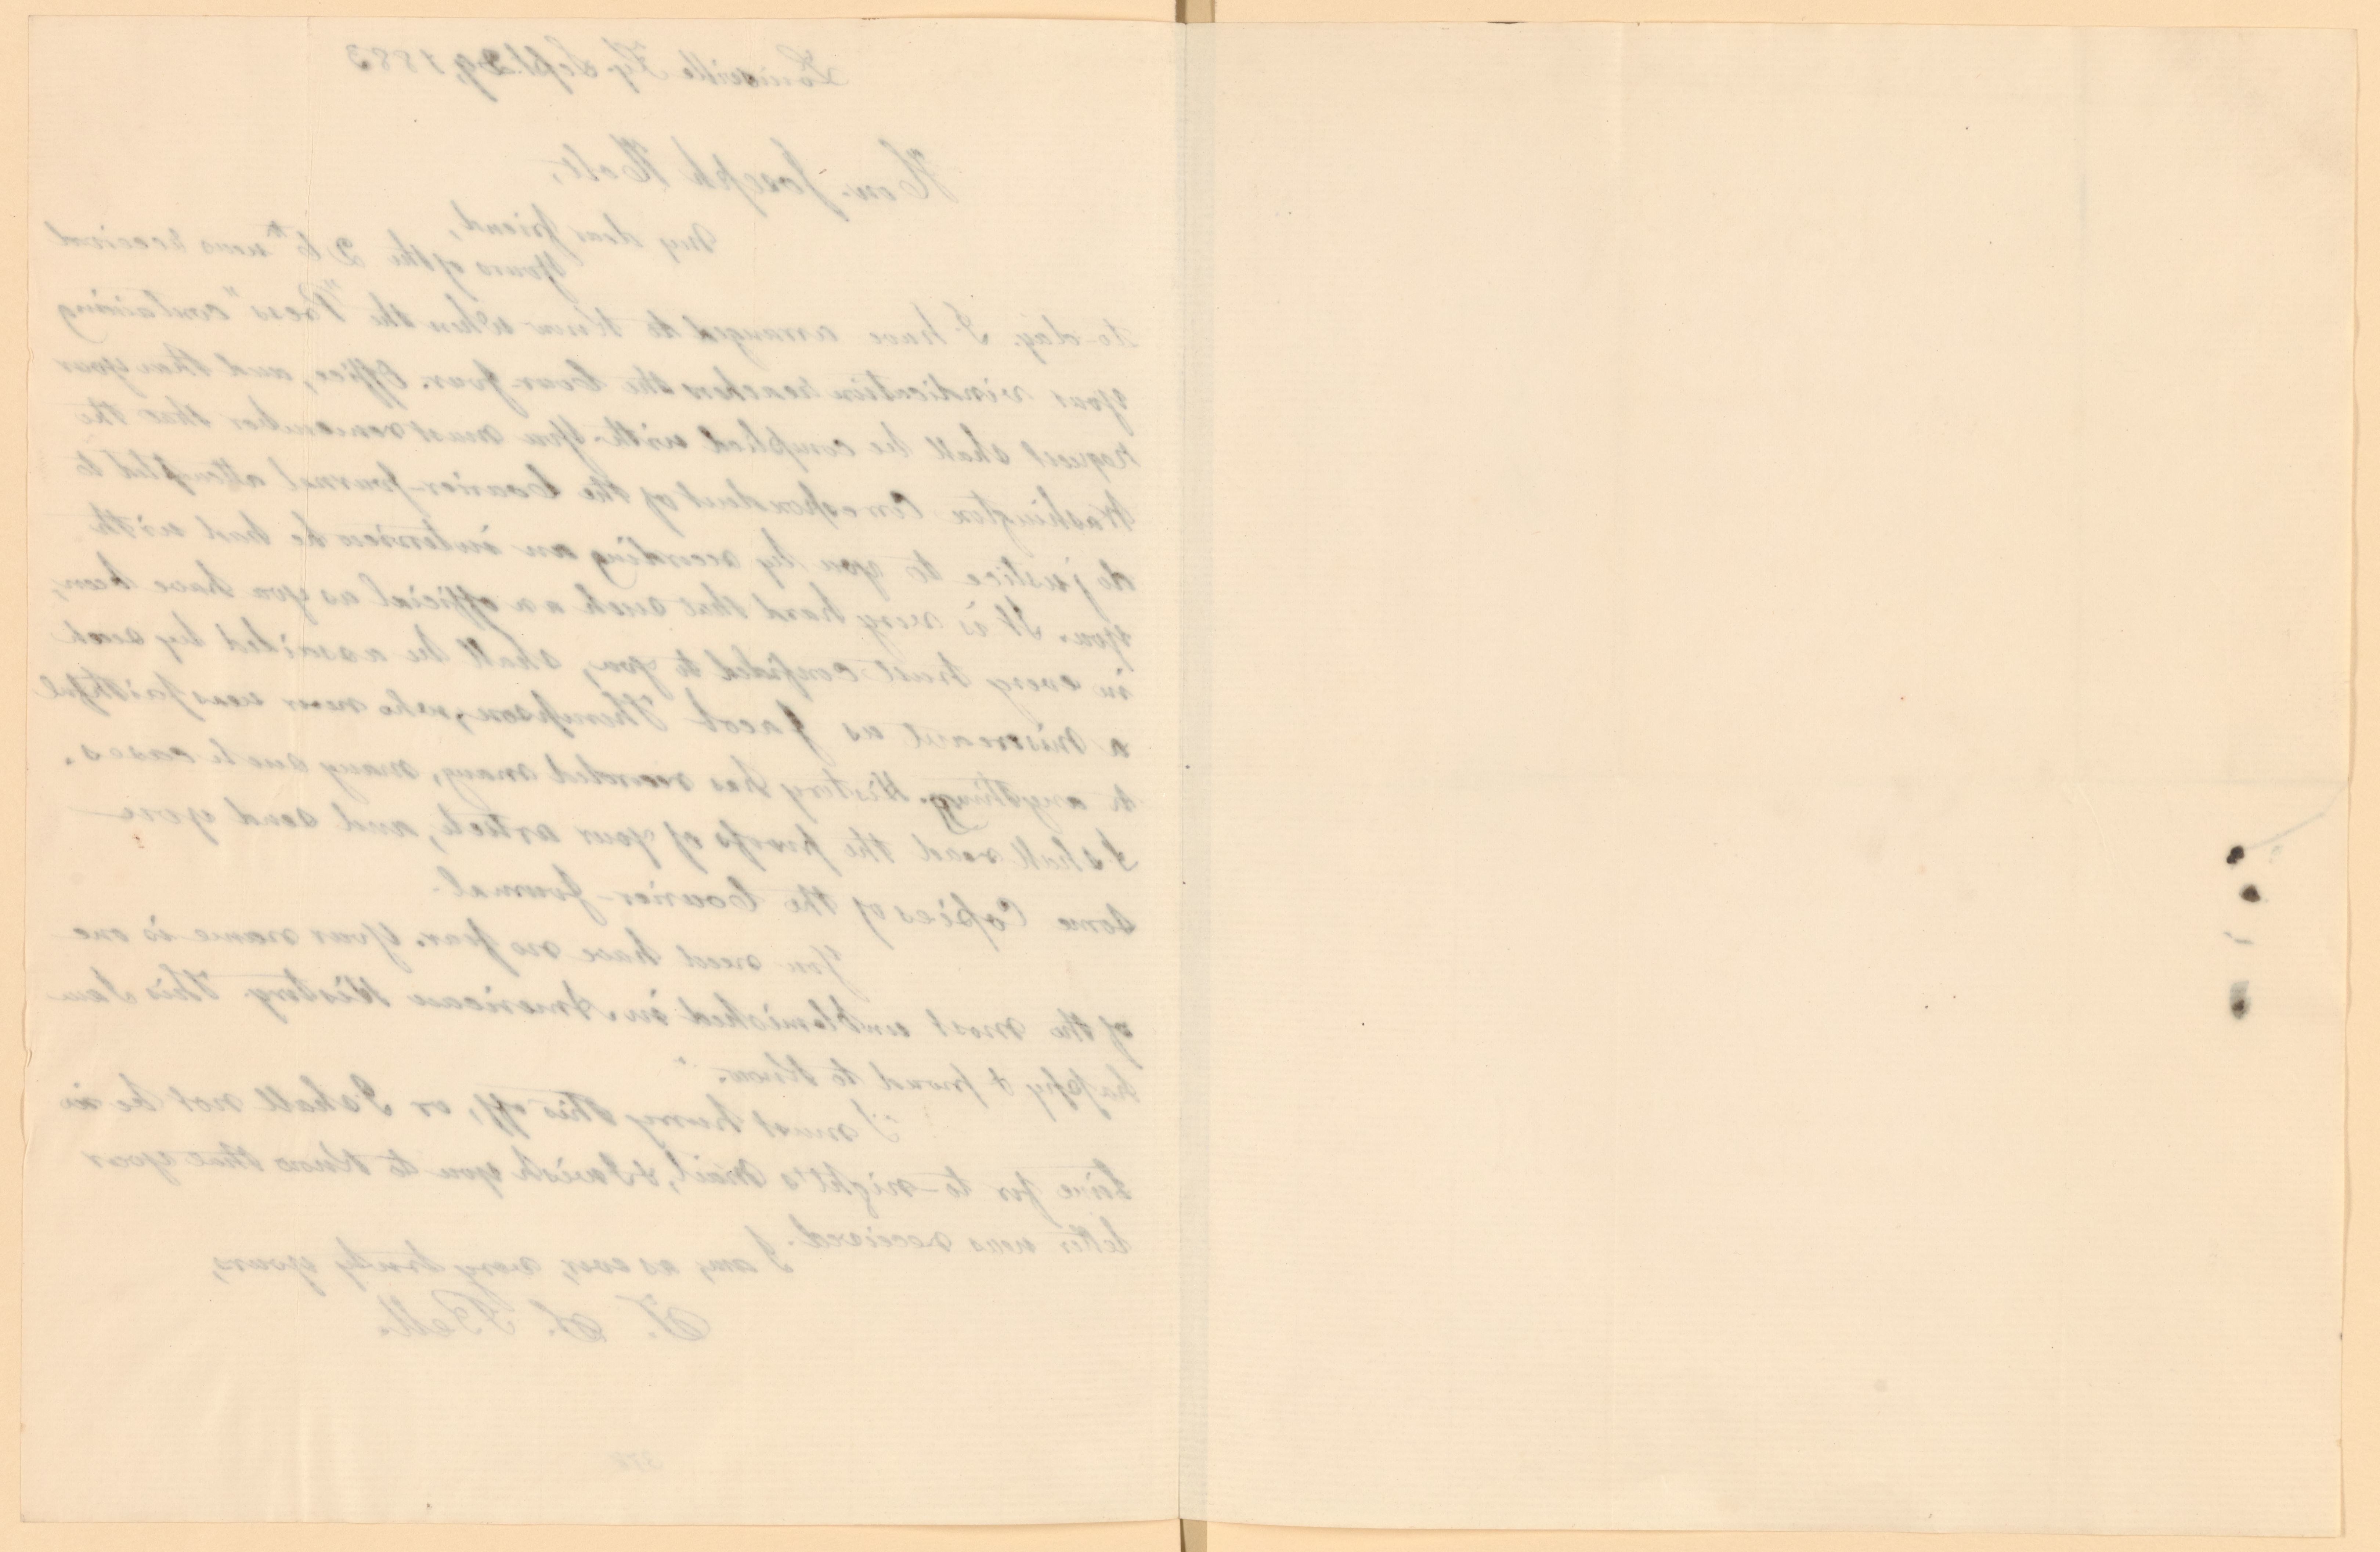 Louisville Ky. Sept. 29, 1883
Hon. Joseph Holt,
My dear friend,
Yours of the 26th was received
to-day. I have arranged to know when the "Press" containing
your vindication reaches the Cour. Jour. Office, and then your
request shall be complied with. You must remember that the
Washington Correspondent of the Courier-Journal attempted to
do justice to you by recording an interview he had with
you. It is very hard that such an official as you have been,
in every trust confided to you, shall be assailed by such
a miscreant as Jacob Thompson, who never was faithful
to anything. History has recorded many, many such cases.
I shall read the proofs of your article, and send you
some Copies of the Courier-Journal.
You need have no fear. Your name is one
of the most unblemished in American History. This I am
happy & proud to know.
I must hurry this off, or I shall not be in
time for to-night's mail, & I wish you to know that your
letter was received.
I am, as ever, very truly yours,
T. S. Bell.